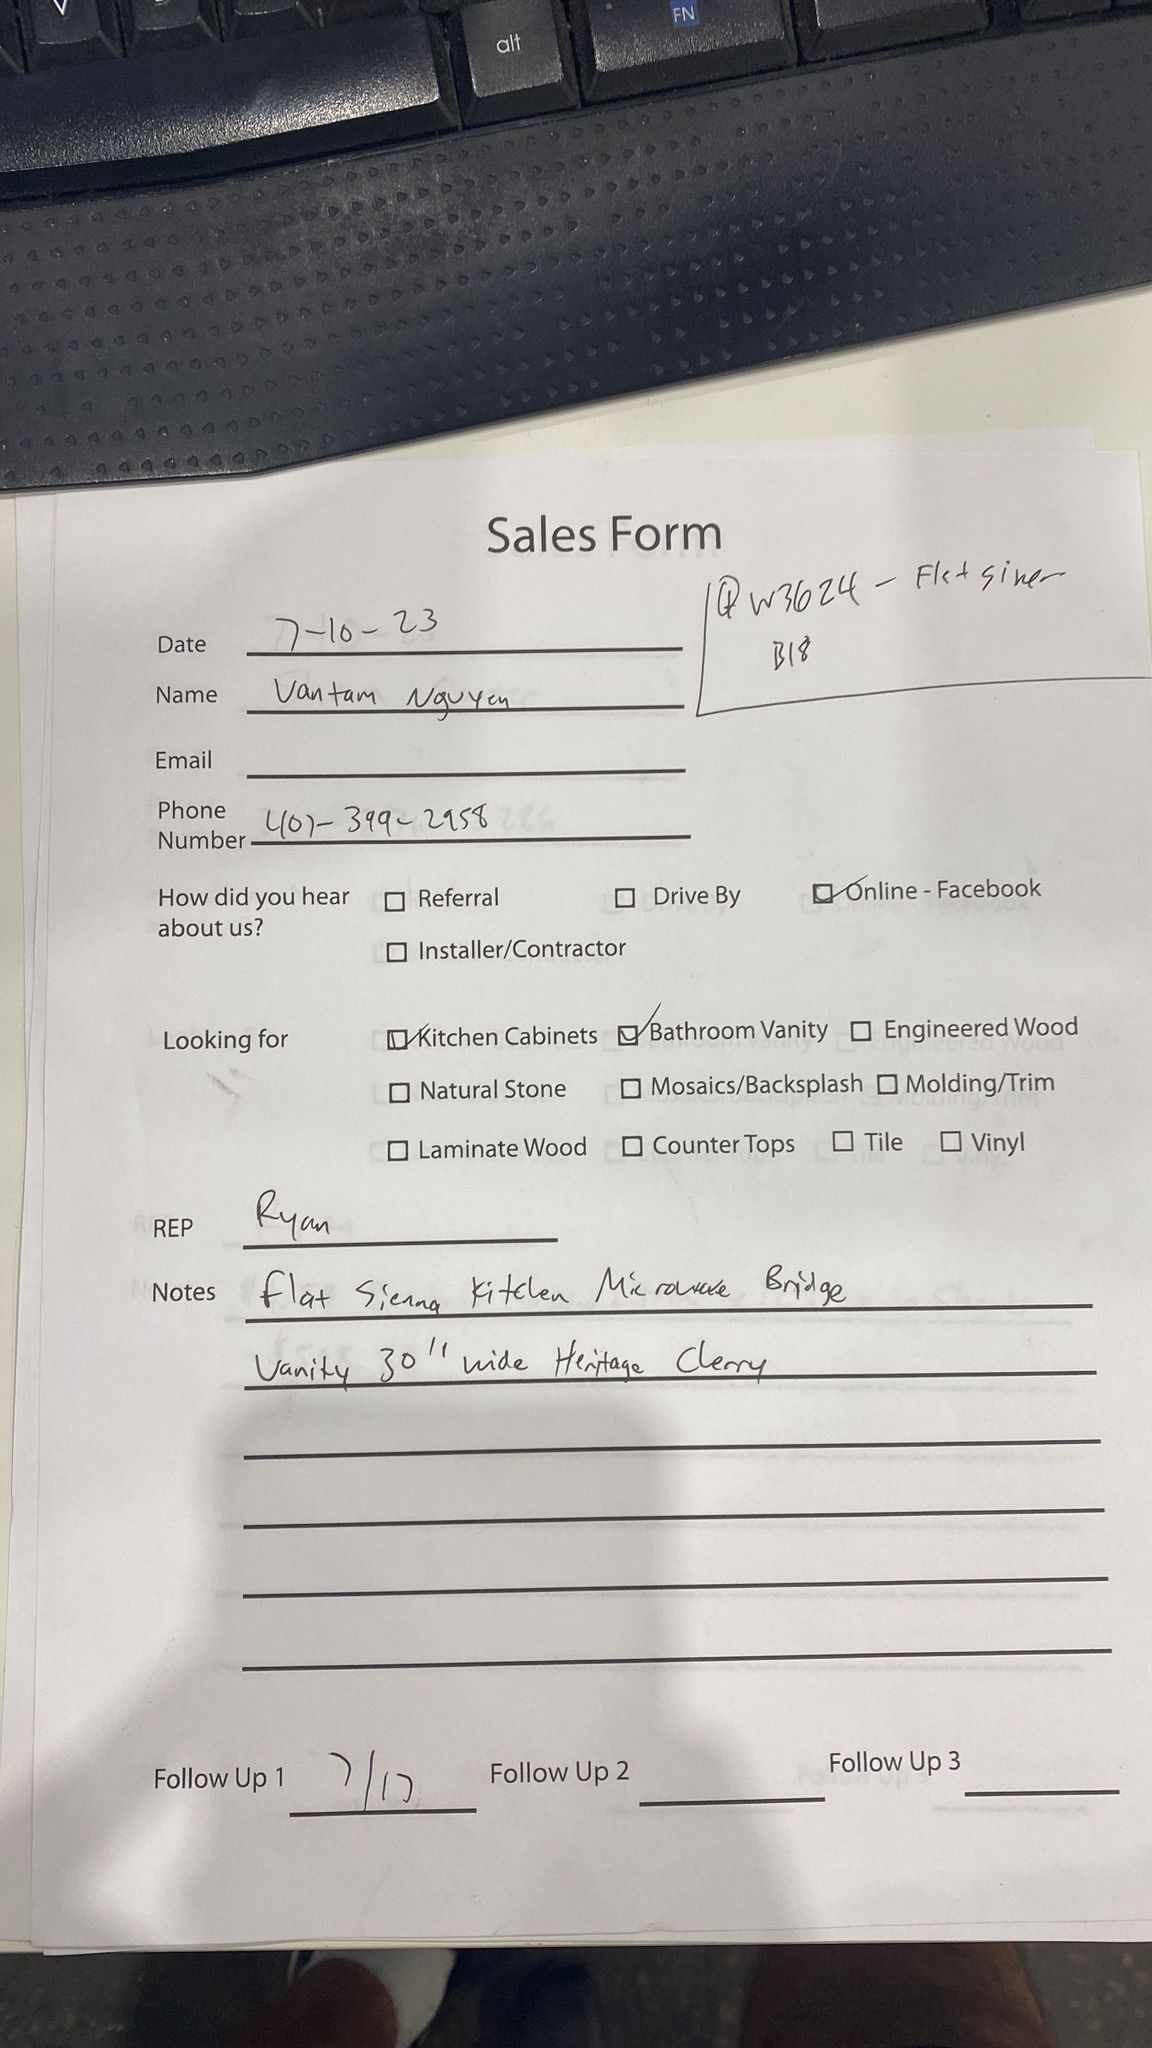 alt
FN
Sales Form
W3624 - Flat
B18
Date 7-10-23
Name Vantam Nguyen
Email
Phone
Number 407-399-2958
How did you hear
about us?
Referral
Drive By
Online - Facebook
Installer/Contractor
Looking for
Kitchen Cabinets
Bathroom Vanity
Engineered Wood
Natural Stone
Mosaics/Backsplash
Molding/Trim
Laminate Wood
Counter Tops
Tile
Vinyl
REP Ryan
Notes Flat Sienna Kitchen Microwave Bridge
Vanity 30" wide Heritage Cherry
Follow Up 1 7/17 Follow Up 2 Follow Up 3